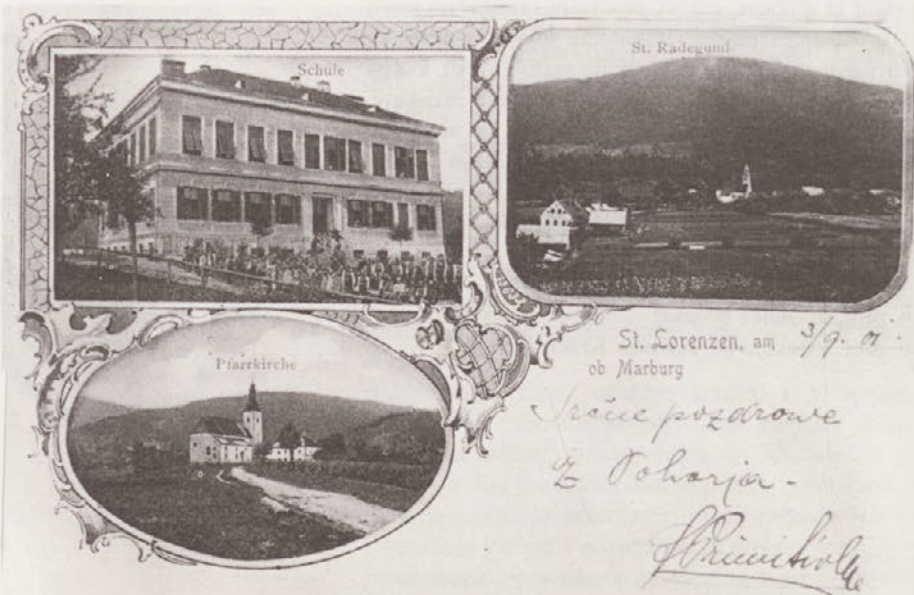 Schule
St. Radegund
Pfarrkirche
St. Lorenzen, am 3/9. 01.
ob Marburg
Srčne pozdrowe
Z Pohorja -